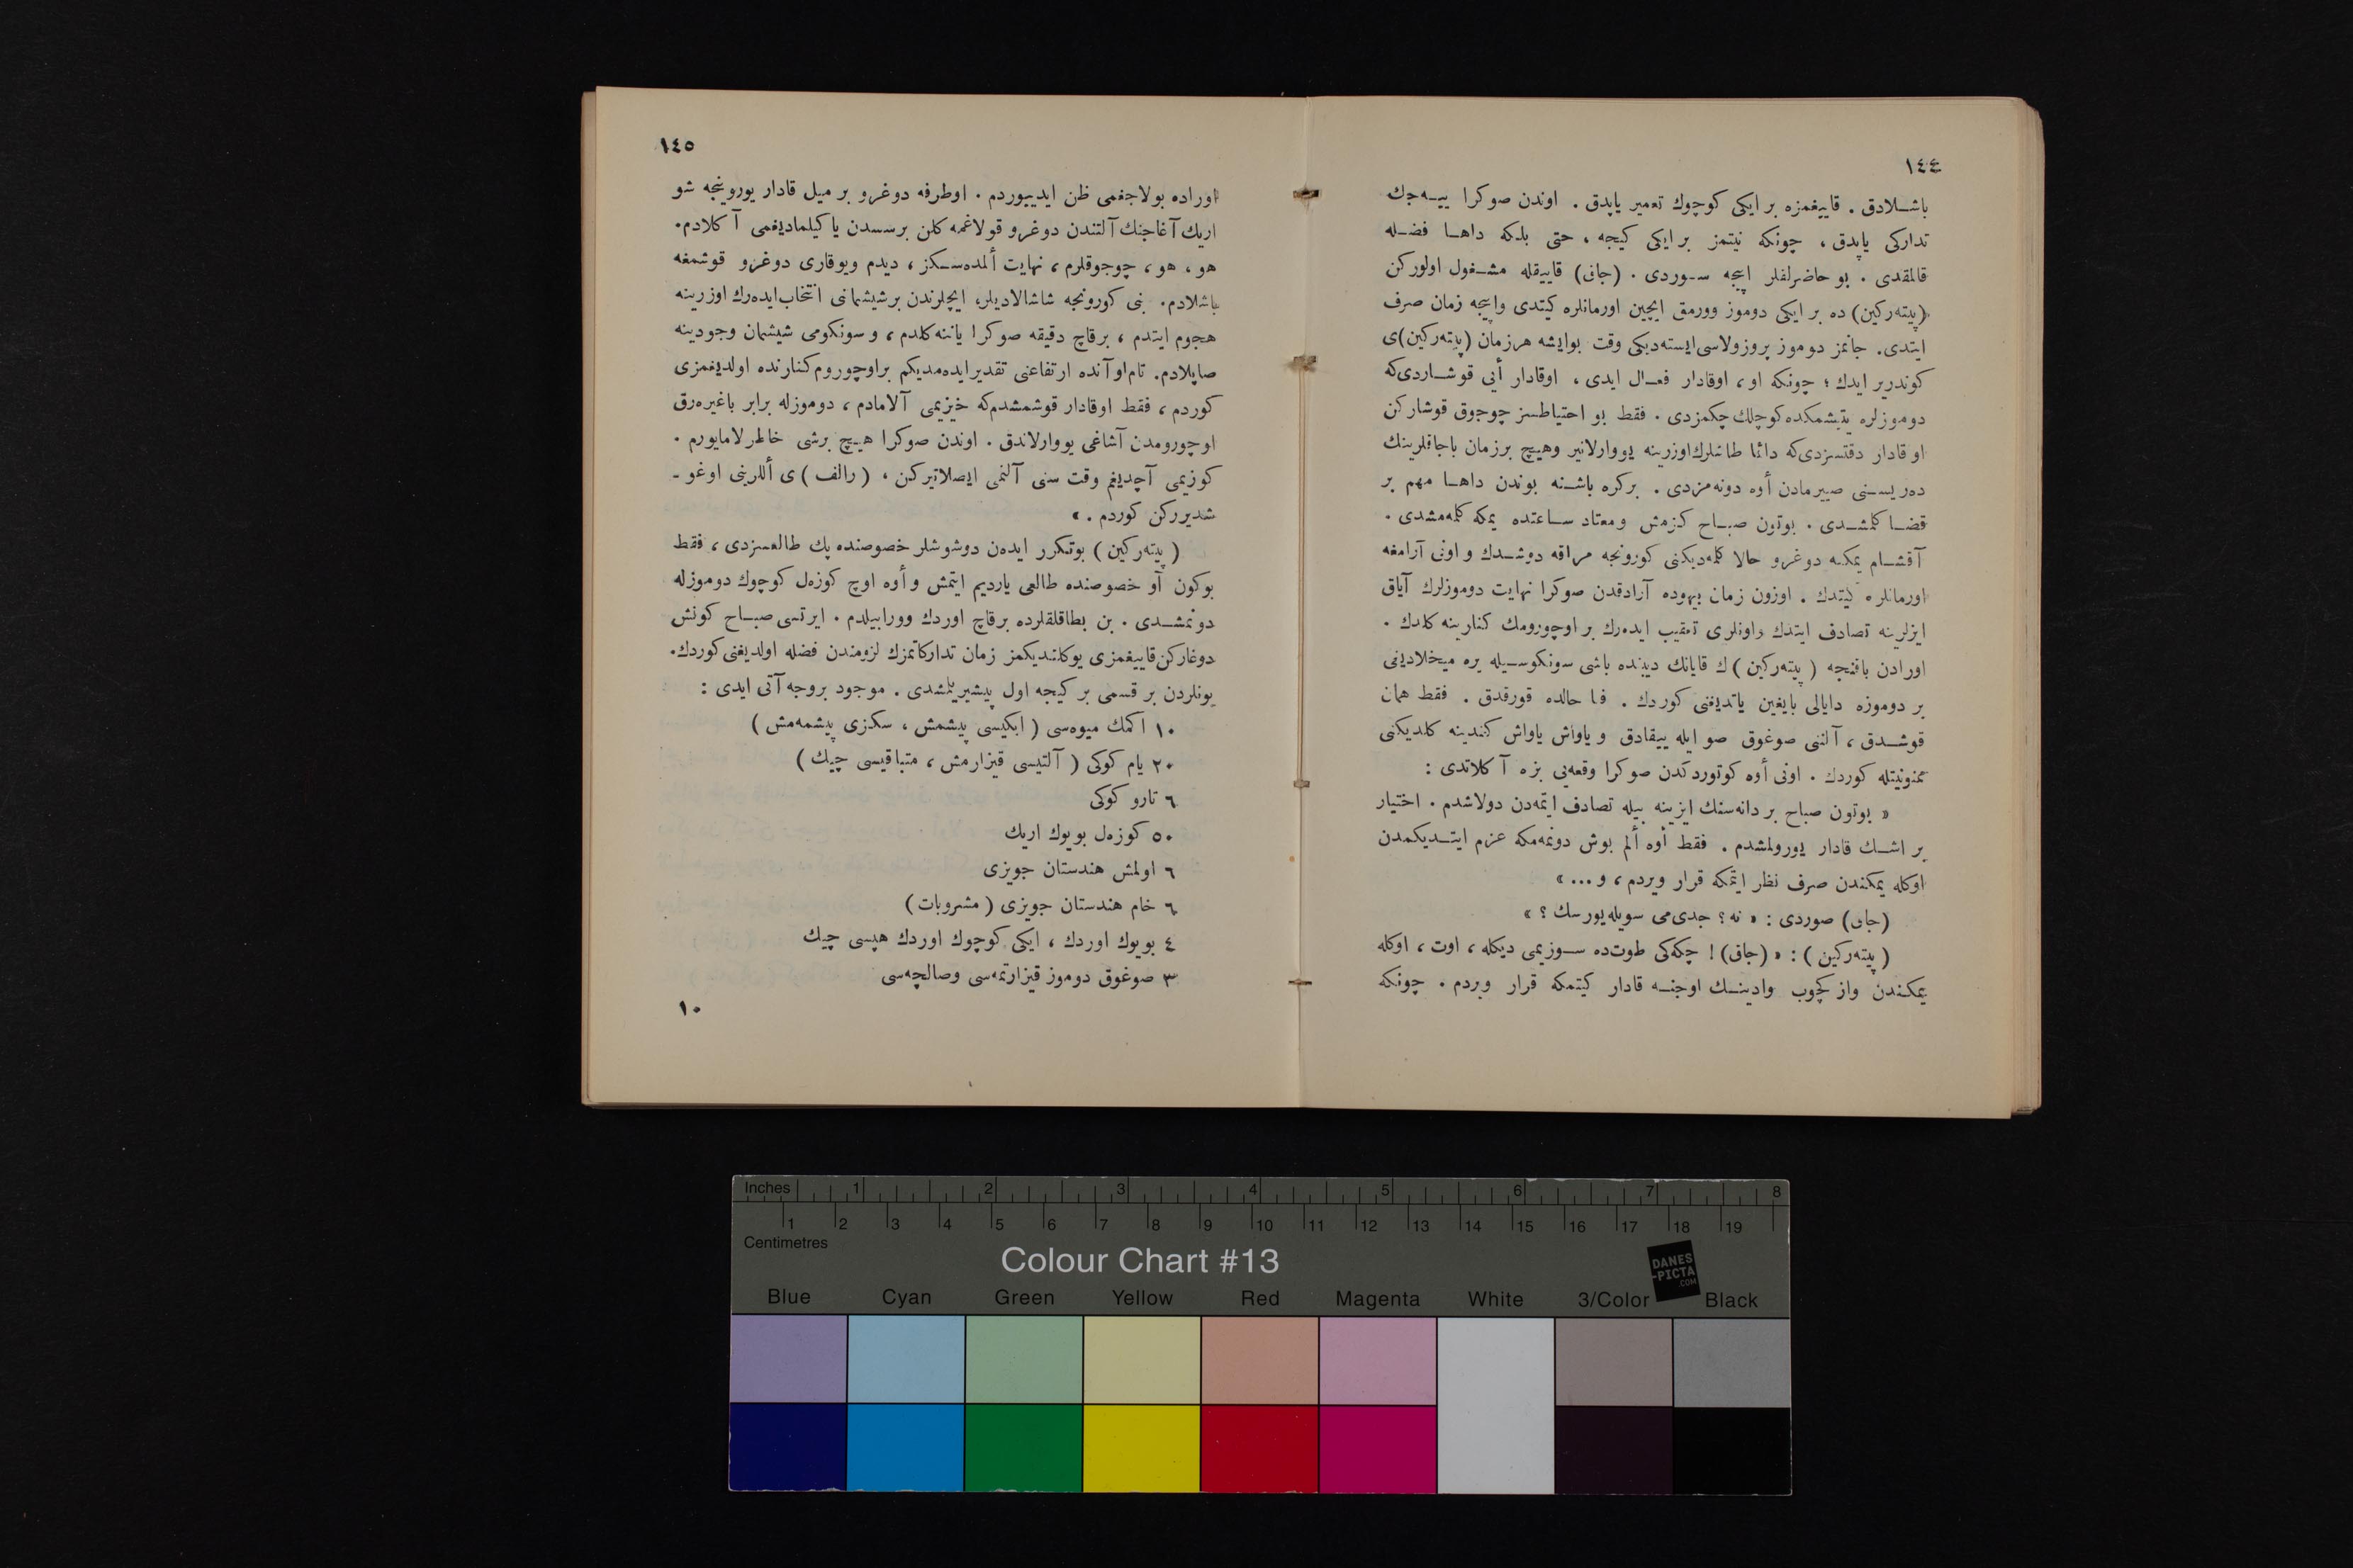 ١٤٤
باشلادق . قاییغمزه بر ایکی کوچوك تعمیر یاپدق . اوندن صوکرا ییه‌جك
تدارکی یاپدق ، چونکه نیتمز بر ایکی کیجه ، حتی بلکه داها فضله
قالمقدی . بو حاضرلقلر اییجه سوردی . (جاق) قاییقله مشغول اولورکن
(پیته‌رکین) ده بر ایکی دوموز وورمق ایچین اورمانلره کیتدی واییجه زمان صرف
ایتدی. جانمز دوموز پروزولاسی ایسته‌دیکی وقت بوایشه هرزمان (پیته‌رکین)ی
کوندریر ایدك ؛ چونکه او ، اوقادار فعال ایدی ، اوقادار أیی قوشاردی‌که
دوموزلره یتیشمکده کوچلك چکمزدی . فقط بو احتیاطسز چوجوق قوشارکن
اوقادار دقتسزدی‌که دائما طاشلرك اوزرینه یووارلانیر وهیچ برزمان باجاقلرینك
ده‌ریسنی صییرمادن أوه دونه‌مزدی . برکره باشنه بوندن داها مهم بر
قضا کلشدی . بوتون صباح کزمش ومعتاد ساعتده یمکه کله‌مشدی .
آقشام یمکنه دوغرو حالا کله‌دیکنی کورونجه مراقه دوشدك و اونی آرامغه
اورمانلره کیتدك . اوزون زمان بیهوده آرادقدن صوکرا نهایت دوموزلرك آیاق
ایزلرینه تصادف ایتدك واونلری تعقیب ایده‌رك بر اوچورومك کنارینه کلدك .
اورادن باقنجه (پیته‌رکین) ك قایانك دیبنده باشی سونکوسیله یره میخلادیغی
بر دوموزه دایالی بایغین یاتدیغنی کوردك . فنا حالده قورقدق . فقط همان
قوشدق ، آلننی صوغوق صو ایله ییقادق و یاواش یاواش کندینه کلدیکنی
ممنونیتله کوردك . اونی أوه کوتوردکدن صوکرا وقعه‌یی بزه آکلاتدی :
« بوتون صباح بر دانه‌سنك ایزینه بیله تصادف ایتمه‌دن دولاشدم . اختیار
بر اشك قادار یورولمشدم . فقط أوه ألم بوش دونمه‌مکه عزم ایتدیکمدن
اوکله یمکندن صرف نظر ایتمکه قرار ویردم ، و ... »
(جاق) صوردی : « نه ؟ جدی‌می سویله‌یورسك ؟ »
(پیته‌رکین) : « (جاق) ! چکه‌کی طوت‌ده سوزیمی دیکله ، اوت ، اوکله
یمکندن واز کچوب وادینك اوجنه قادار کیتمکه قرار ویردم . چونکه
١٤٥
اوراده بولاجغمی ظن ایدییوردم . اوطرفه دوغرو بر میل قادار یورونجه شو
اریك آغاجنك آلتندن دوغرو قولاغمه کلن برسسدن یاکیلمادیغمی آکلادم.
هو ، هو ، چوجوقلرم ، نهایت ألمده‌سکز ، دیدم ویوقاری دوغرو قوشمغه
باشلادم. بنی کورونجه شاشالادیلر، ایچلرندن برشیشمانی انتخاب‌ایده‌رك اوزرینه
هجوم ایتدم ، برقاچ دقیقه صوکرا یاننه کلدم ، و سونکومی شیشمان وجودینه
صاپلادم. تام‌اوآنده ارتفاعنی تقدیرایده‌مدیکم براوچوروم‌کنارنده اولدیغمزی
کوردم ، فقط اوقادار قوشمشدم‌که خیزیمی آلامادم ، دوموزله برابر باغیره‌رق
اوچورومدن آشاغی یووارلاندق . اوندن صوکرا هیچ برشی خاطرلامایورم .
کوزیمی آچدیغم وقت سنی آلنمی ایصلاتیرکن ، (رالف) ی أللرینی اوغو ـ
شدیررکن کوردم . »
(پیته‌رکین) بوتکرر ایده‌ن دوشوشلر خصوصنده پك طالعسزدی ، فقط
بوکون آو خصوصنده طالعی یاردیم ایتمش و أوه اوچ کوزه‌ل کوچوك دوموزله
دونمشدی . بن بطاقلقلرده برقاچ اوردك وورابیلدم . ایرتسی صباح کونش
دوغارکن‌قاییغمزی یوکلتدیکمز زمان تدارکاتمزك لزومندن فضله اولدیغنی‌کوردك.
بونلردن بر قسمی بر کیجه اول پیشیریلمشدی . موجود بروجه آتی ایدی :
١٠ اکمك میوه‌سی ( ایکیسی پیشمش ، سکزی پیشمه‌مش )
٢٠ یام کوکی ( آلتیسی قیزارمش ، متباقیسی چیك )
٦ تارو کوکی
٥٠ کوزه‌ل بویوك اریك
٦ اولمش هندستان جویزی
٦ خام هندستان جویزی ( مشروبات )
٤ بویوك اوردك ، ایکی کوچوك اوردك هپسی چیك
٣ صوغوق دوموز قیزارتمه‌سی وصالچه‌سی
١٠
Inches 1 2 3 4 5 6 7 8
1 2 3 4 5 6 7 8 9 10 11 12 13 14 15 16 17 18 19
Centimetres
Colour Chart #13
DANES
-PICTA
.COM
Blue Cyan Green Yellow Red Magenta White 3/Color Black